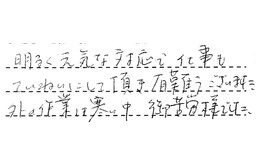 明るく元気な対応で仕事も
ていねいにして頂き有難うございます。
外の作業は寒い中御苦労様です。